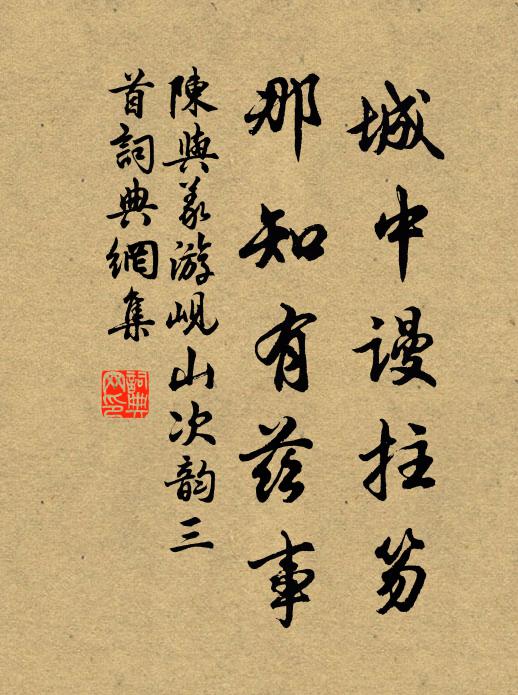 城中謾拄笏
那知有茲事
陳與義游峴山次韵三
首詞典網集
詞典